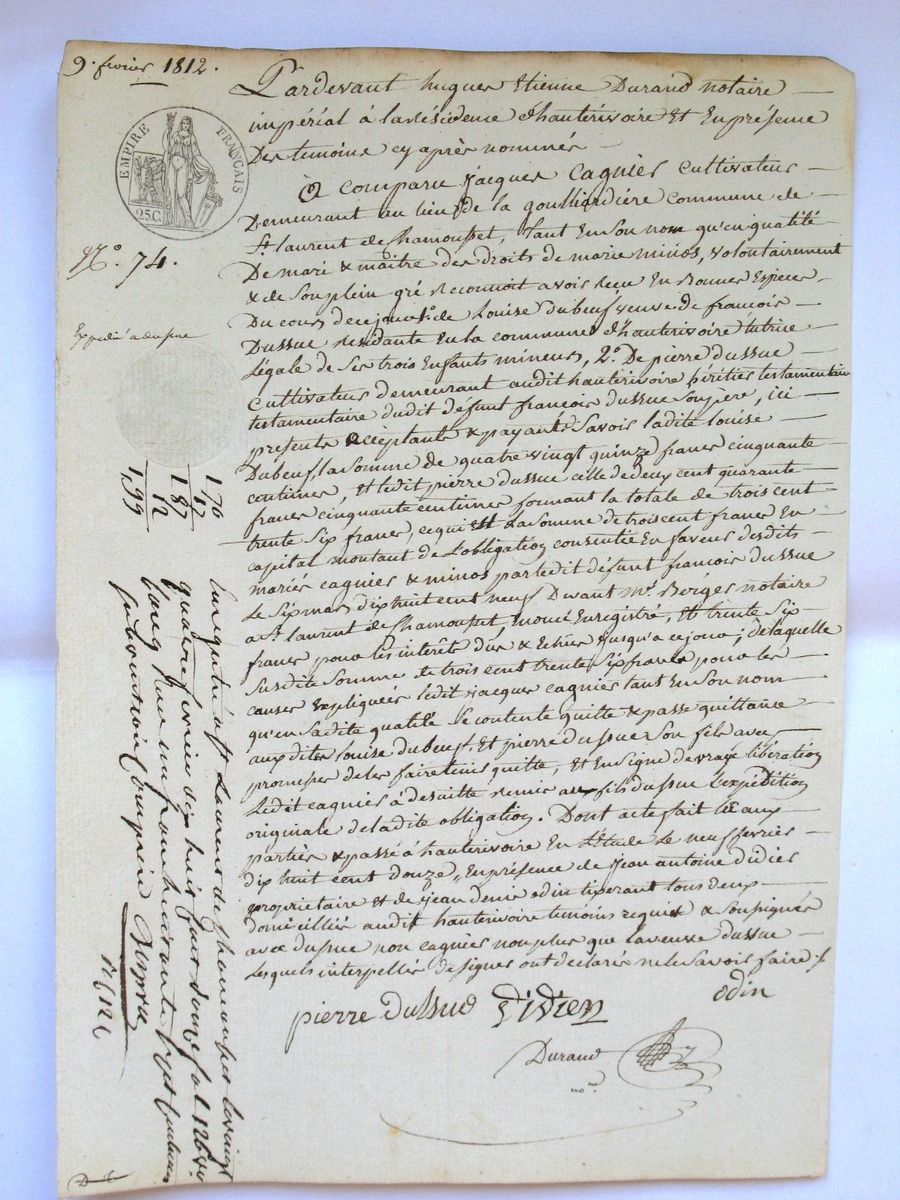 9. fevrier 1812.
EMPIRE FRANÇAIS
25C.
N.º 74.
Expedié a dussue
Pardevant hugues Etienne Durand notaire
impérial à la résidence d'hauterivoire Et En présence
Des temoins cy après nommés
a comparu Jacques cagnier cultivateur
Demeurant au lieu de la goulliardière commune de
St. laurent de Chamousset, tant En son nom qu'en qualité
De mari & maître des droits de marie minos, volontairement
& de son plein gré Reconnoit avoir Recu En Bonnes Especes
Du cours de ce jour 1º. de Louise dubeuf veuve de francois
Dussue Residante En la commune d'hauterivoire tutrice
Légale de Ses trois Enfants mineurs, 2º. De pierre dussue
cultivateur demeurant audit hauterivoire héritier testamentaire
testamentaire dudit défunt francois dussue Son père, ici
présents acceptants & payants Savoir ladite louise
Dubeuf, la Somme de quatre vingt quinze francs cinquante
centimes, Et ledit pierre dussue celle de deux cent quarante
francs cinquante centimes formant la totale de trois cent
trente Six francs, ce qui Est La Somme de trois cent francs En
capital montant de L'obligation consentie En faveur desdits
mariés cagnier & minos par ledit défunt francois dussue
Le Six mars dix huit cent neuf Devant Me. Berger notaire
a St. laurent de Chamousset, Enregistré, Et trente Six
francs pour les interêt dûs & Echus Jusqu'a ce jour; de laquelle
Susdite Somme de trois cent trente Six francs pour les
causes Expliquées ledit Jacques cagnier tant En Son nom
qu'en Sadite qualité Se contente quitte & passe quittance
auxdites louise dubeuf Et pierre dussue Son fils avec
promesse de les faire tenir quitte, Et En Signe de vraye libération
Ledit cagnier à de Suitte Remis au fils dussue L'expédition
originale de ladite obligation. Dont acte fait lû aux
parties & passé à hauterivoire En L'étude Le neuf fevrier
dix huit cent douze, En présence de Jean antoine didier
propriétaire Et de Jean denis Edin tisserant tous deux
domiciliés audit hauterivoire temoins requis & Soussignés
avec dussue non cagnier non plus que la veuve dussue
Lesquels interpellés de signer ont déclarés ne le Savoir faire
pierre Dussue
Didier
Edin
Durand
no.re
170
17
187
12
199
Enregistré à St Laurent de chamousset le vingt
quatre fevrier dix huit cent douze fol 126